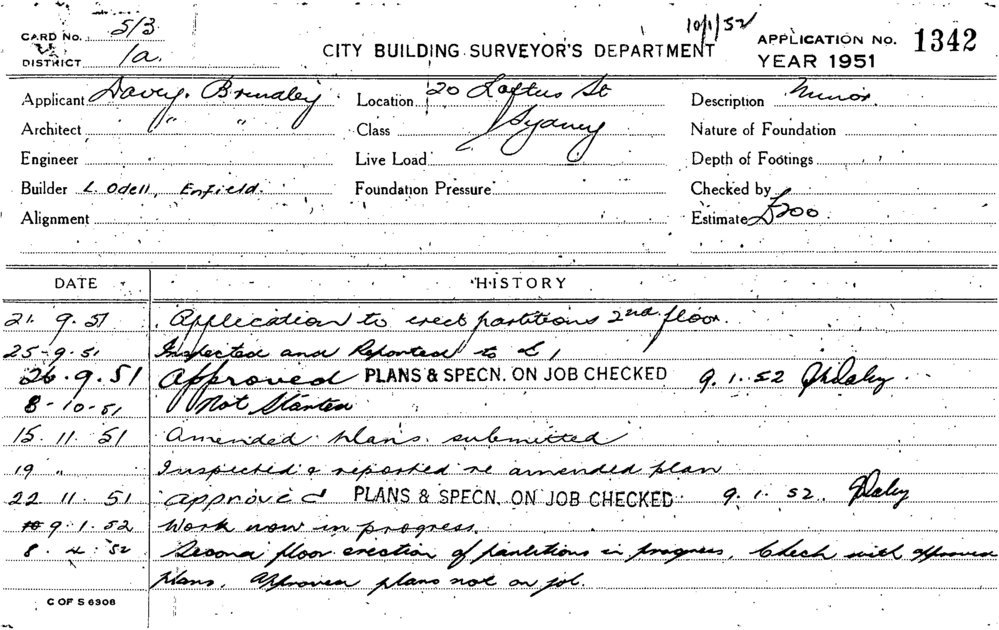 CARD No. 513
DISTRICT 1a.
CITY BUILDING SURVEYOR'S DEPARTMENT
10/1/52
APPLICATION No. 1342
YEAR 1951
Applicant Davey. Brindley
Location 20 Loftus St
Description Minor
Architect " "
Class Sydney
Nature of Foundation
Engineer
Live Load
Depth of Footings
Builder L. Odell, Enfield.
Foundation Pressure
Checked by
Alignment
Estimate £200
DATE HISTORY
21. 9. 51 Application to erect partitions 2nd floor.
25-9.51 Inspected and Reported to
26.9.51 Approved PLANS & SPECN. ON JOB CHECKED 9.1.52
8-10-51 Not Started
15.11.51 Amended plans submitted
19 " Inspected & reported re amended plan
22 11. 51 Approved PLANS & SPECN. ON JOB CHECKED 9.1.52.
9.1.52 Work now in progress.
8. 4. 52 Second floor erection of partitions in progress, Check with approved
plans. Approved plans not on job.
C OF S 6308